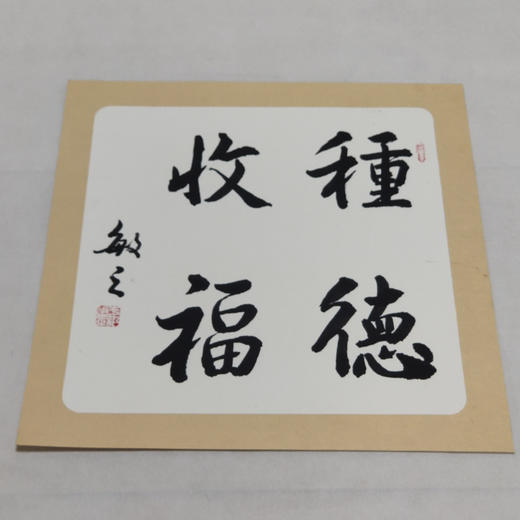 種德
收福
敏之